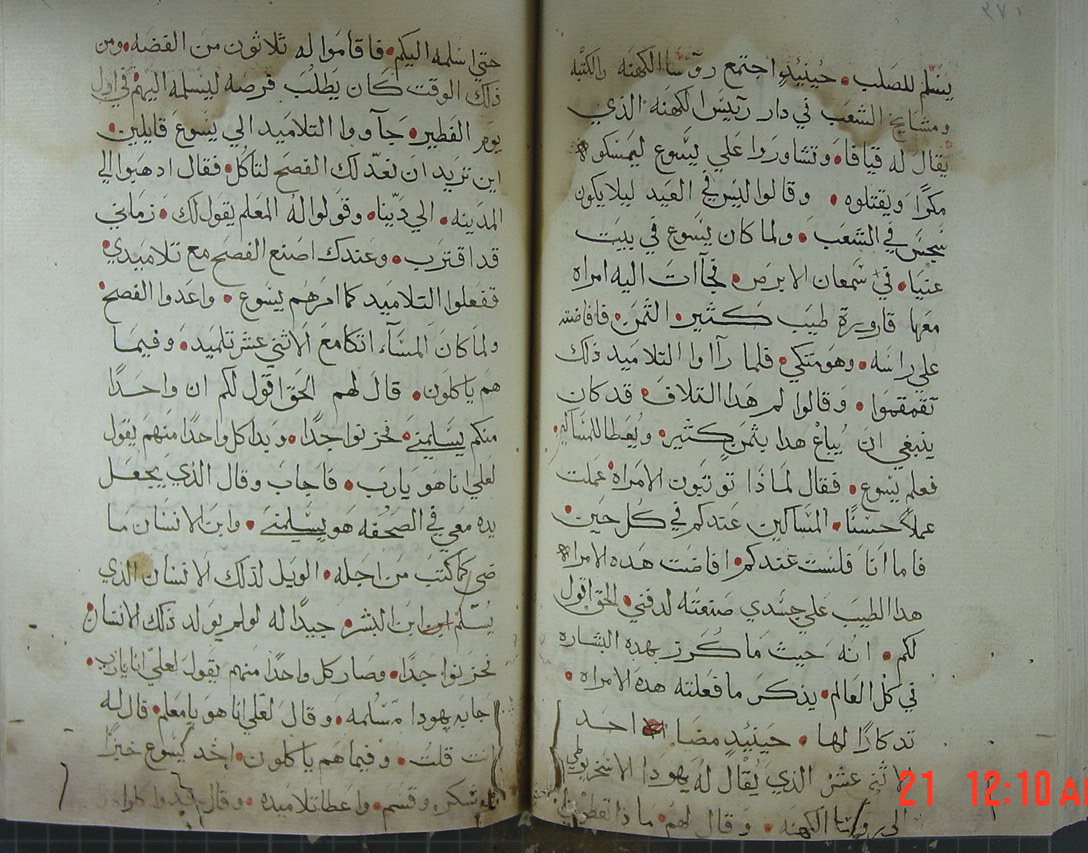 ٣٧١
يسلم للصلب. حينيدٍ اجتمع روسا الكهنه والكتبه
ومشايخ الشعب في دار رييس الكهنه الذي
يقال له قيافا. وتشاوروا علي يسوع ليمسكوه
مكرًا ويقتلوه. وقالوا ليس في العيد ليلا يكون
سجس في الشعب. ولما كان يسوع في بيت
عنيا. في شمعان الابرص. فجاات اليه امراه
معها قارورة طيب كثير الثمن. فافاضته
علي راسه. وهو متكي. فلما رااوا التلاميد ذلك
تقمقموا. وقالوا لم هدا التلاف. قد كان
ينبغي ان يباع هدا بثمن كثير. ويعطا للمساكين.
فعلم يسوع. فقال لماذا توتبون الامراه عملت
عملاً حسنًا. المساكين عندكم في كل حين.
فاما انا فلست عندكم. افاضت هده الامراه
هدا الطيب علي جسدي صنعته لدفني. الحق اقول
لكم. انه حيث ما كرز بهده البشاره
في كل العالم. يذكر ما فعلته هده الامراه.
تدكارًا لها. حينيدٍ مضا احد
الاثني عشر الذي يقال له يهودا الاسخريوطي
الي روسا الكهنه. وقال لهم. ماذا تعطوني
حتي اسلمه اليكم. فاقاموا له ثلاثون من الفضه. ومن
ذلك الوقت كان يطلب فرصه ليسلمه اليهم في اول
يوم الفطير. جآووا التلاميد الي يسوع قايلين.
اين تريد ان نعد لك الفصح لتاكل. فقال ادهبوا الي
المدينه. الي دينا. وقولوا له المعلم يقول لك. زماني
قد اقترب. وعندك اصنع الفصح مع تلاميدي.
ففعلوا التلاميد كما امرهم يسوع. واعدوا الفصح
ولما كان المسآء اتكا مع الاثني عشر تلميد. وفيما
هم ياكلون. قال لهم الحق اقول لكم ان واحدًا
منكم يسلمني. فحزنوا جدًا. وبدا كل واحدًا منهم يقول
لعلي انا هو يارب. فاجاب وقال الذي يجعل
يده معي في الصحفه هو يسلمني. وابن الانسان ماضي
كما كتب من اجله. الويل لذلك الانسان الذي
يسلم ابن البشر. جيدًا له لو لم يولد ذلك الانسان
فحزنوا جدًا. وصار كل واحدًا منهم يقول لعلي انا يارب.
جابه يهودا مسلمه. وقال لعلي انا هو يا معلم. قال له
انت قلت. وفيما هم ياكلون. اخد يسوع خبزًا
وشكر وقسم. واعطا تلاميده. وقال خدوا كلوا
21 12:10 AM